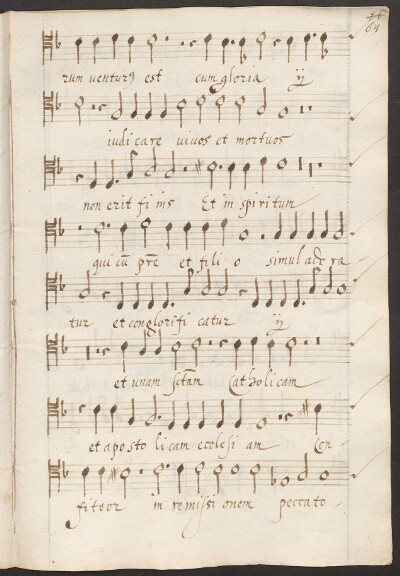 64
rum ventur9 est cum gloria ij
iudi care vivos et mortuos
non erit fi nis Et in spiritum
qui cū pre et fi li o simul ado ra-
tur et conglorifi catur ij
et unam sctam Catholicam
et aposto licam ecclesi am Con-
fiteor in remissi onem peccato-